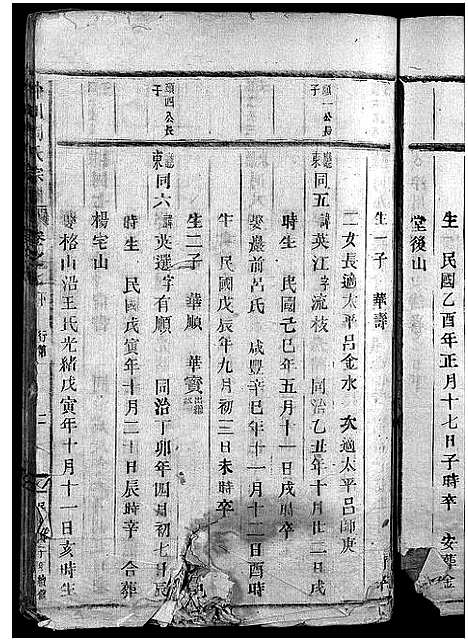 生 民國乙酉年正月十七日子時卒 安葬金
堂後山
生一子 華壽
二女長適太平呂金水 次適太平呂
頭一公長子
東同五 諱英江字流枝 同治乙丑年十月廿二日戌
時生 民國己巳年五月十一日戌時卒
娶巖前呂氏 咸豐辛巳年十一月十二日酉時
生 民國戊辰年九月初三日未時卒
生二子 華順 華寶 出繼
頭四公長子
東同六 諱英選字有順 同治丁卯年四月初七日辰
時生 民國戊寅年十月二十日辰時卒 合葬
楊宅山
娶格山沿王氏光緒戊寅年十月十一日亥時生